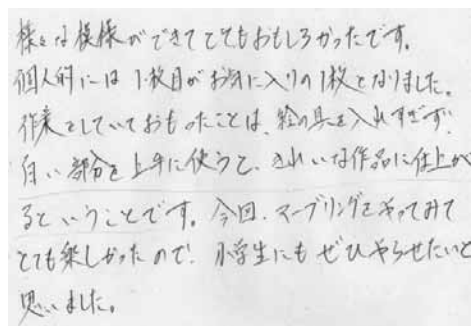 様々な模様ができてとてもおもしろかったです。
個人的には1枚目がお気に入りの1枚となりました。
作業としていておもったことは、絵の具を入れすぎず、
白い部分を上手に使うと、きれいな作品に仕上が
るということです。今回、マーブリングをやってみて
とても楽しかったので、小学生にもぜひやらせたいと
思いました。